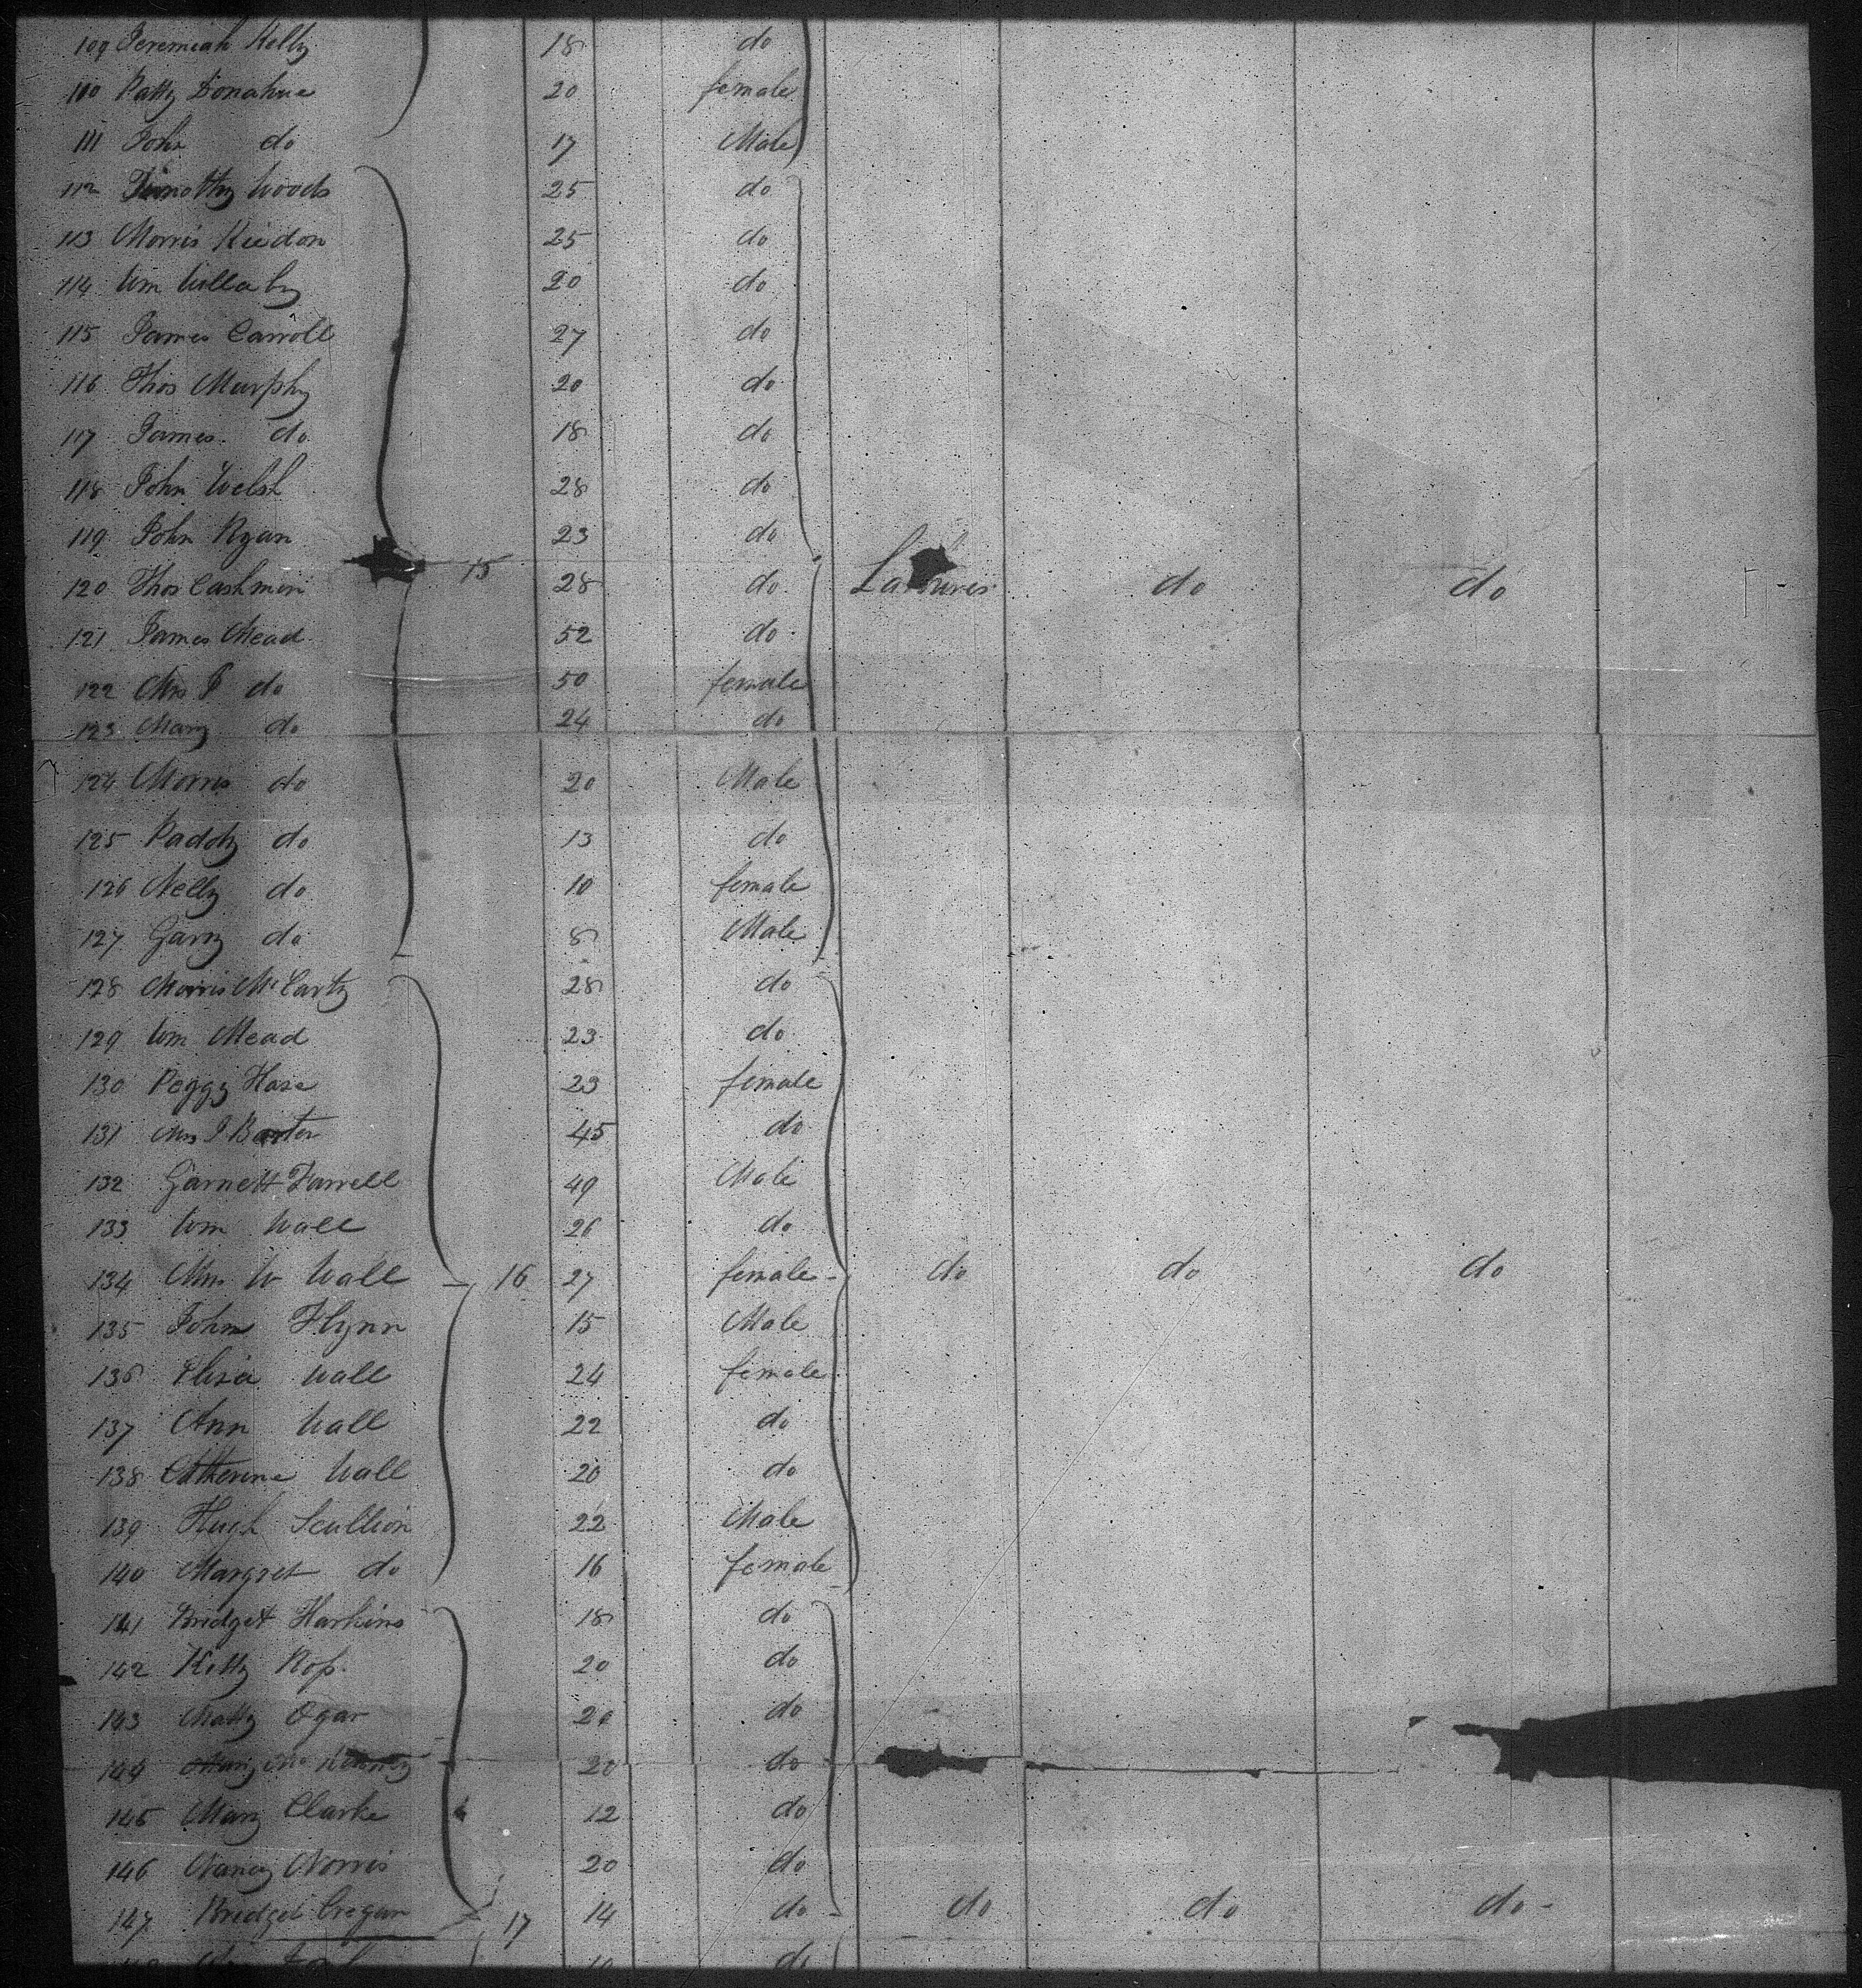 109 Jeremiah Kelly 18 do
110 Patty Donahue 20 female
111 John do 17 Male
112 Timothy Woods 25 do
113 Morris Riedon 25 do
114 Wm Willaby 20 do
115 James Carroll 27 do
116 Thos Murphy 20 do
117 James do 18 do
118 John Welsh 28 do
119 John Ryan 23 do
15
120 Thos Cashmen 28 do Labourers do do
121 James Mead 52 do
122 Mrs J do 50 female
123 Mary do 24 do
124 Morris do 20 Male
125 Paddy do 13 do
126 Nelly do 10 female
127 Garry do 8 Male
128 Morris McCarty 28 do
129 Wm Mead 23 do
130 Peggy Hase 23 female
131 Mrs J Barter 45 do
132 Garnett Farrell 49 Male
133 Wm Wall 26 do
134 Mrs W Wall 16 27 female do do do
135 John Flynn 15 Male
136 Eliza Wall 24 female
137 Ann Wall 22 do
138 Catherine Wall 20 do
139 Hugh Scullion 22 Male
140 Margret do 16 female
141 Bridget Harkins 18 do
142 Kitty Ross 20 do
143 Matty Ogar 20 do
144 Mary Mc 20 do
145 Mary Clarke 12 do
146 Nancy Norris 20 do
147 Bridget Cregan 17 14 do do do do
do